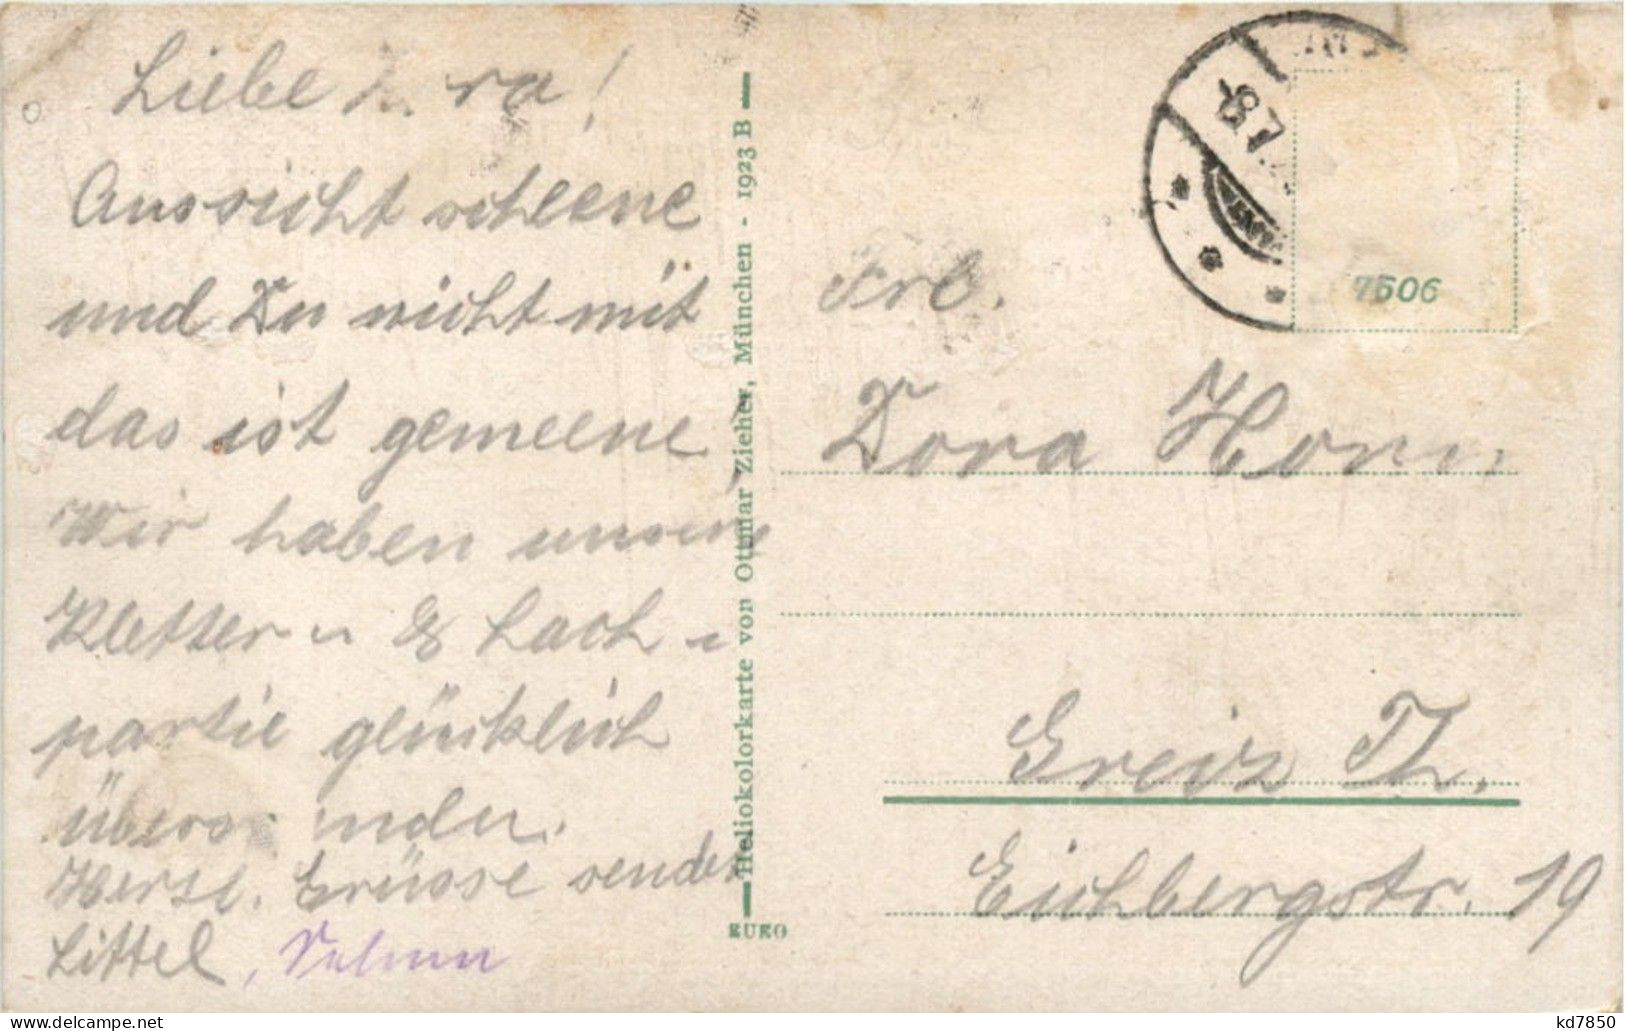 Liebe Dora!
Aussicht schleene
und Du nicht mit
das ist gemeene,
Wir haben unsere
Kletter u
partie glücklich
Herzl. Grüsse sendet
Littel,
Heliokolorkarte von Ottmar Zieher, München - 1923 B
EUKO
8 7
7506
Frl.
Dora Horn.
Greiz Th.
Eichbergstr. 19
www.delcampe.net
kd7850